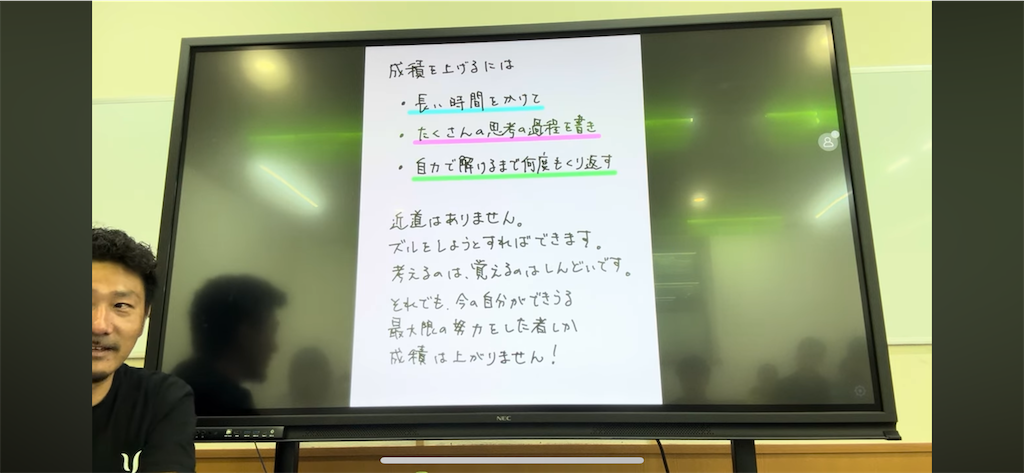 成積を上げるには
・長い時間をかけて
・たくさんの思考の過程を書き
・自力で解けるまで何度もくり返す
近道はありません。
ズルをしようとすればできます。
考えるのは、覚えるのはしんどいです。
それでも、今の自分ができうる
最大限の努力をした者しか
成積は上がりません!
NEC